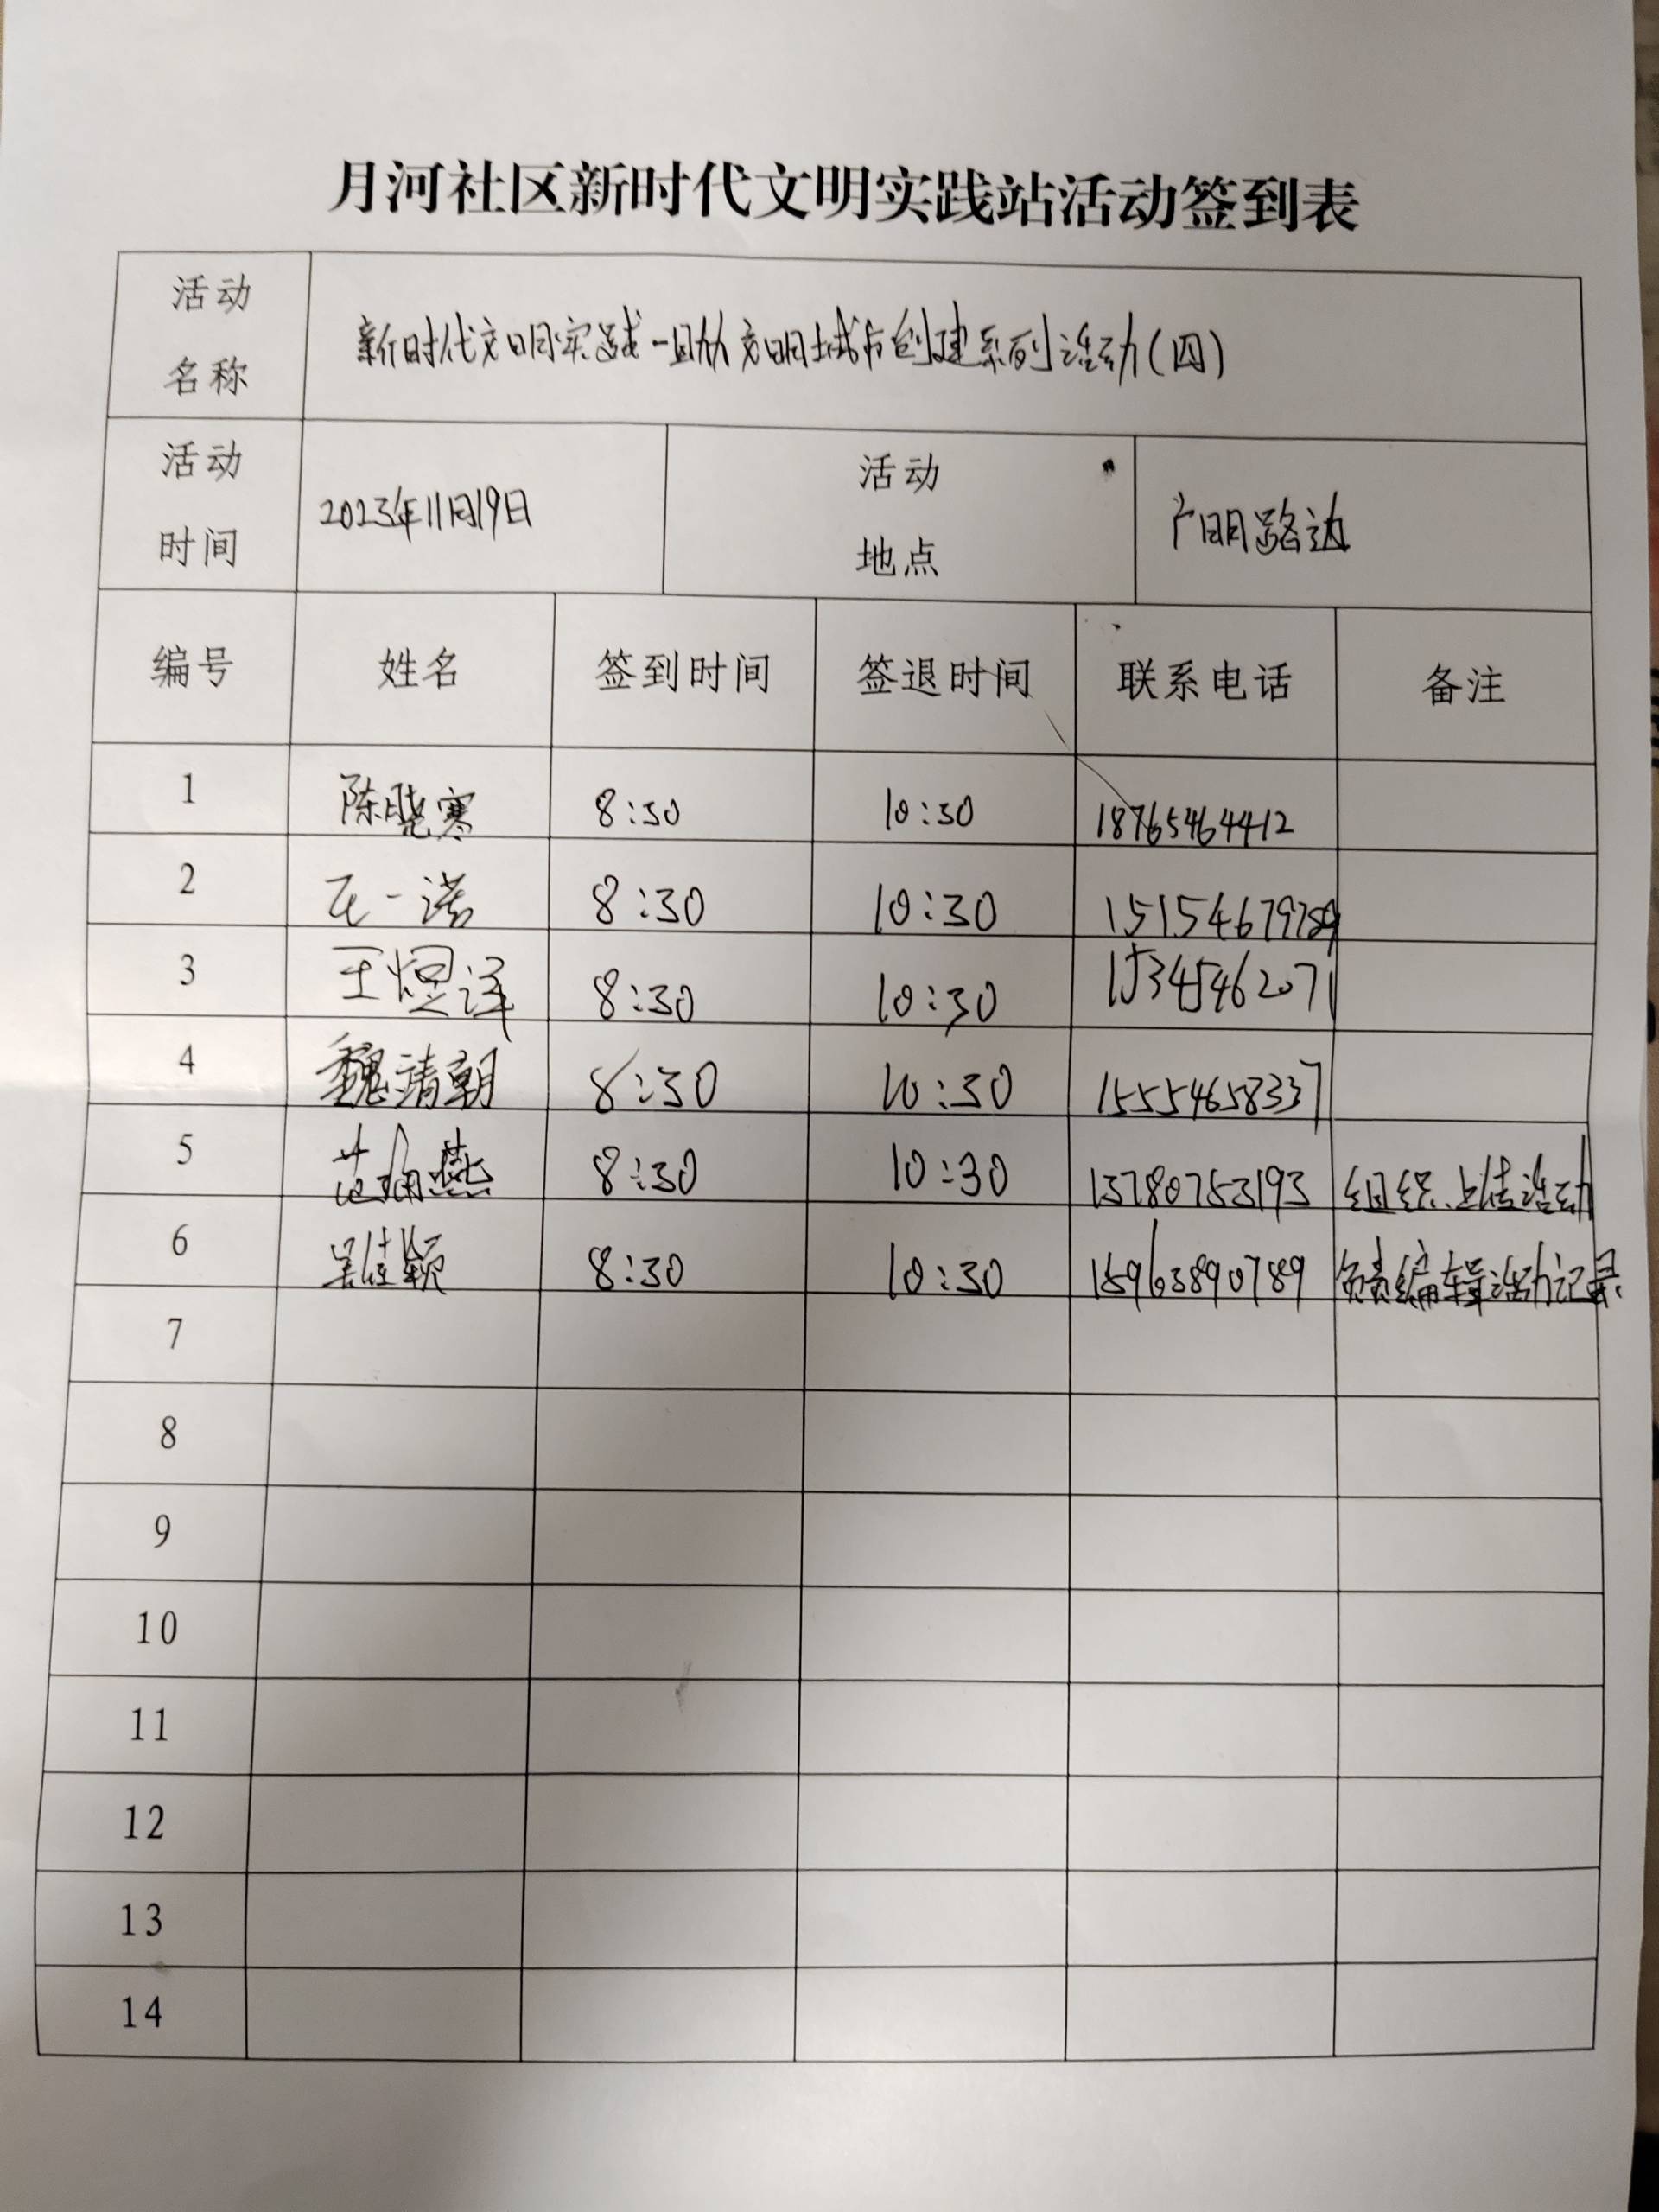 月河社区新时代文明实践站活动签到表
活动名称 新时代文明实践-助力文明城市创建系列活动(四)
活动时间 2023年11月19日 活动地点 广明路边
编号 姓名 签到时间 签退时间 联系电话 备注
1 陈晓寒 8:30 10:30 18765464412
2 一诺 8:30 10:30 15154679789
3 王煜泽 8:30 10:30 15345462071
4 魏靖朝 8:30 10:30 15554658337
5 范 燕 8:30 10:30 13780753193 组织、上传活动
6 吴佳颖 8:30 10:30 15963890789 负责编辑活动记录
7
8
9
10
11
12
13
14